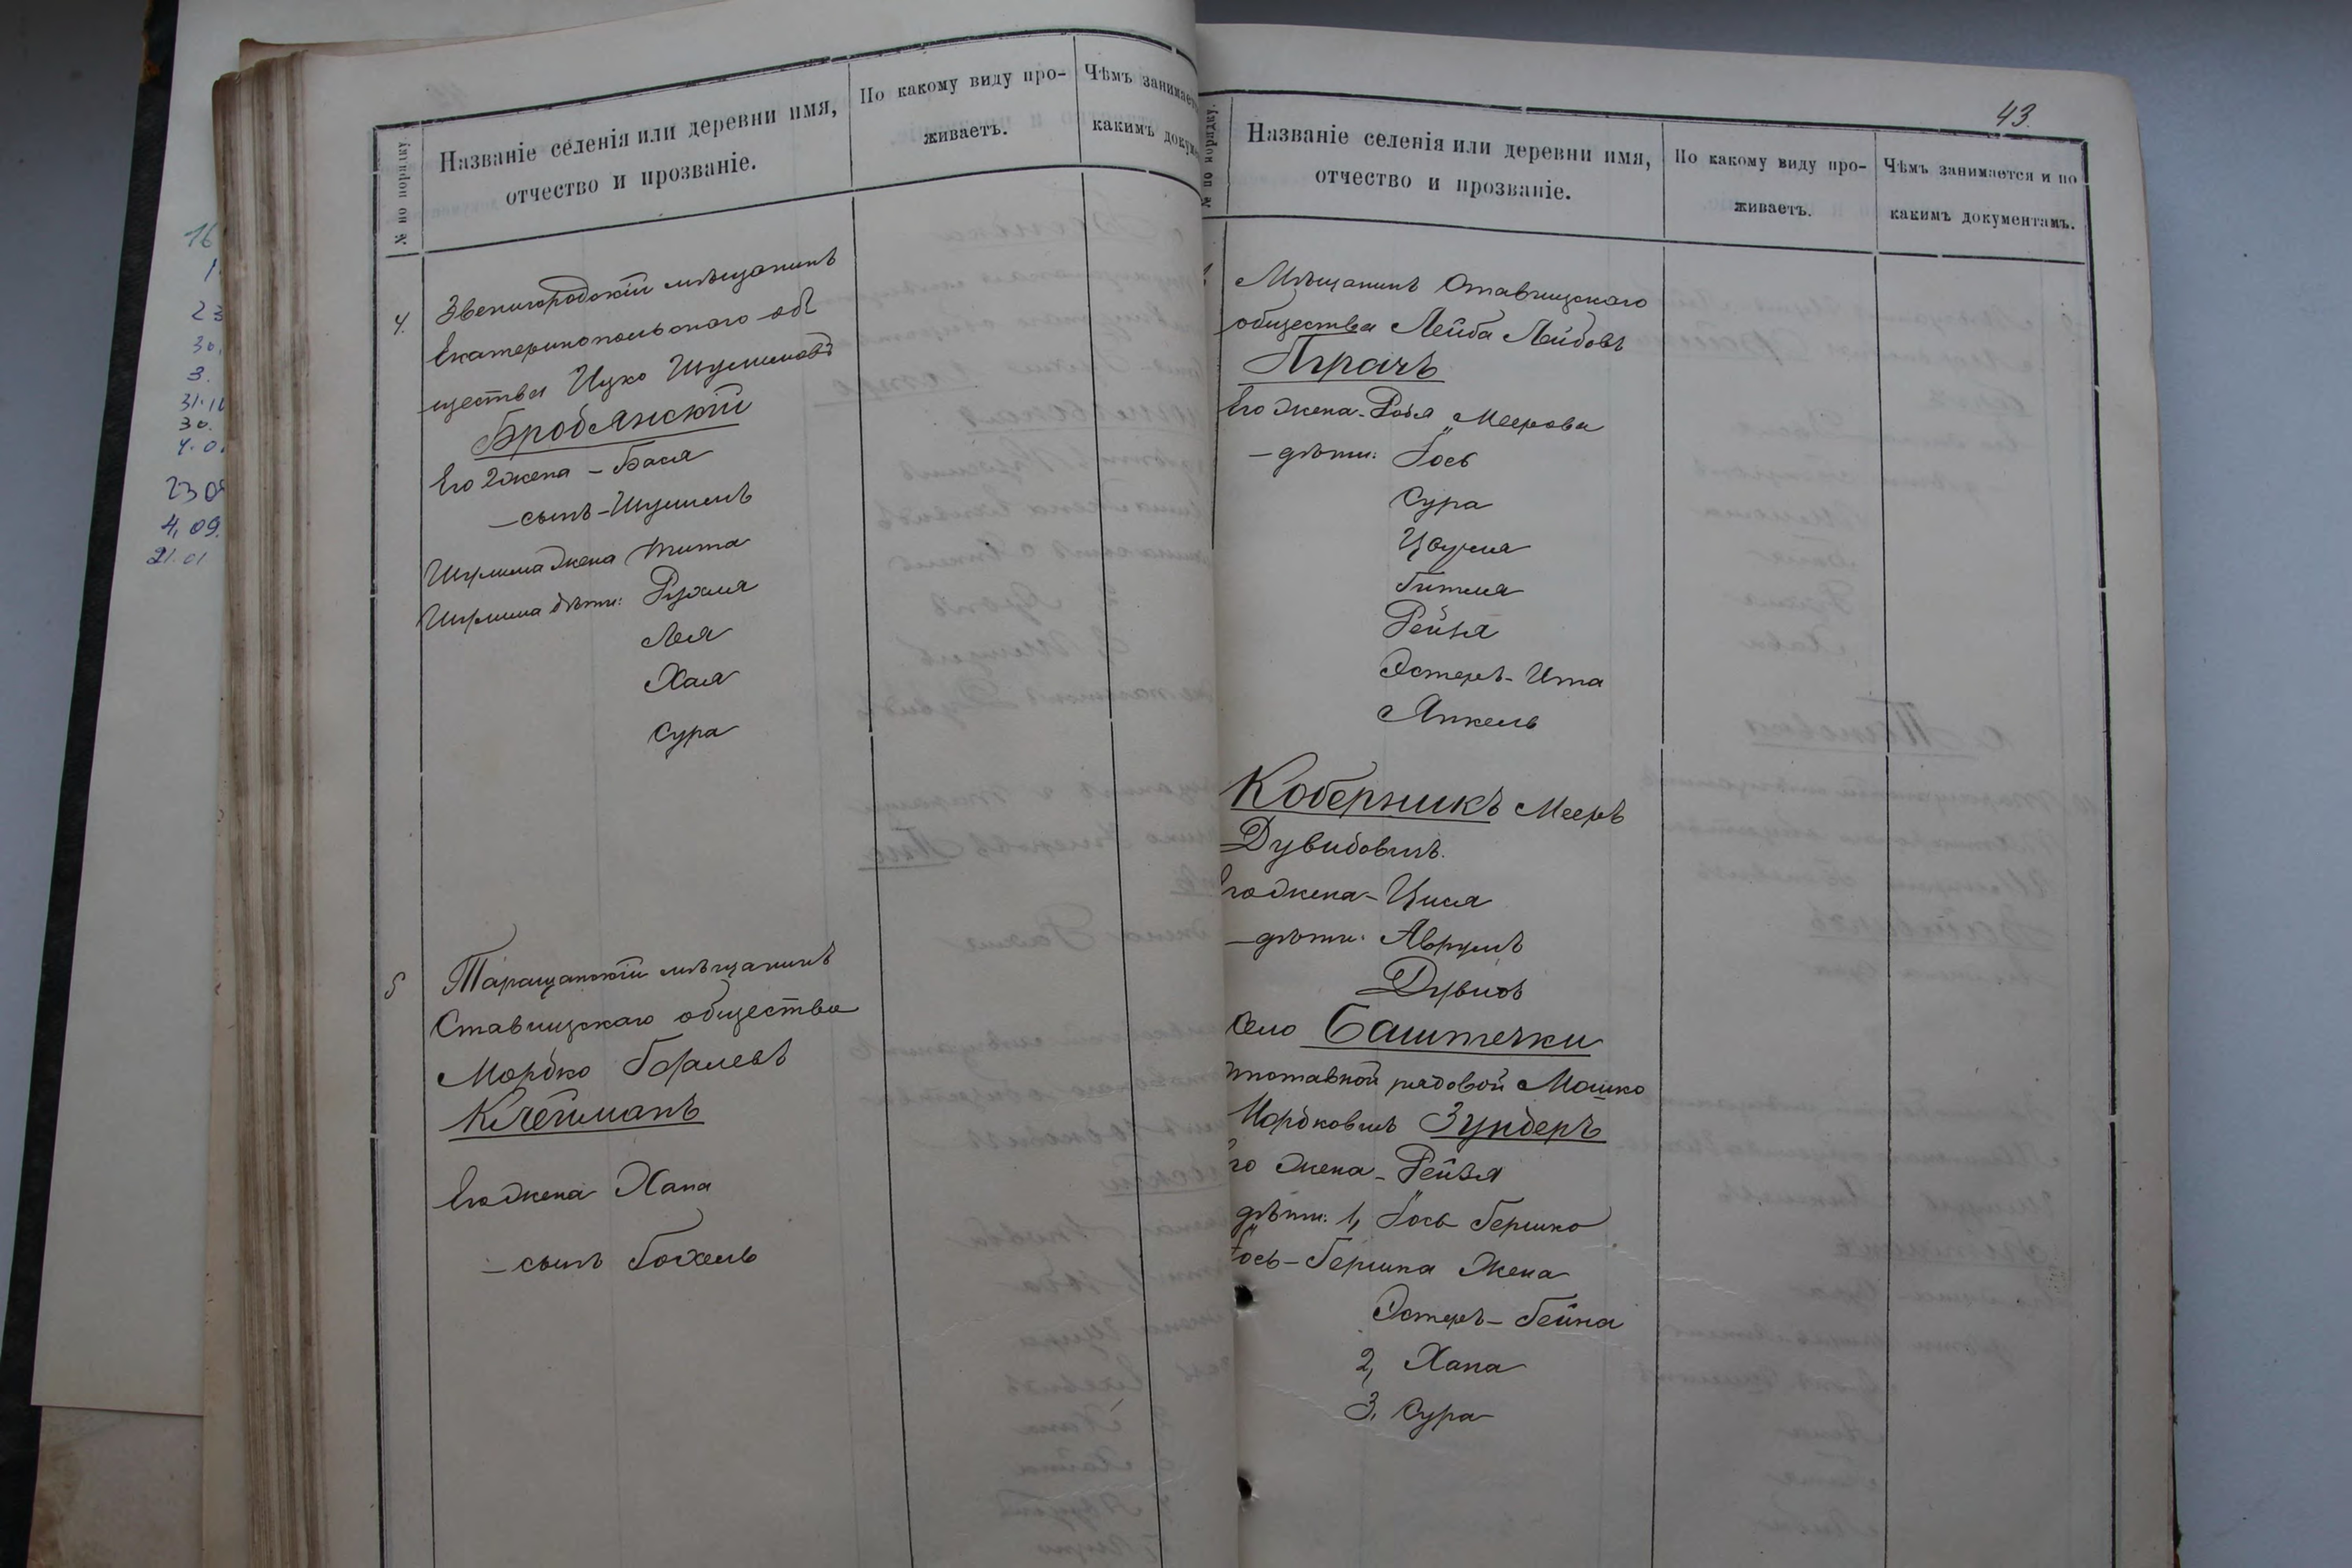 16
1
23
30.
3.
30.
4.0
23 09
4, 09.
21.01
№ по порядку.
Названіе селенія или деревни имя,
отчество и прозваніе.
По какому виду про-
живаетъ.
Чѣмъ занимает
какимъ докуме
4.
Звенигородскій мѣщанинъ
Екатеринопольскаго об
щества Ицко Шулимовъ
Бробянскій
Его жена – Бася
– сынъ – Шулимъ
Шулима жена Тита
Шулима дѣти: Рухля
Лея
Хая
Сура
5
Таращанскій мѣщанинъ
Ставищскаго общества
Мордко Срулевъ
Клейманъ
Его жена Хана
– сынъ Іосхель
43.
№ по порядку.
Названіе селенія или деревни имя,
отчество и прозваніе.
По какому виду про-
живаетъ.
Чѣмъ занимается и по
какимъ документамъ.
Мѣщанинъ Ставищскаго
общества Лейба Лейбовъ
Ткачъ
Его жена – Рося Меерова
– дѣти: Іось
Сура
Цвуля
Гитля
Рейзя
Эстеръ – Ита
Янкель
Коберникъ Мееръ
Дувидовичъ.
Его жена – Циля
– дѣти: Аврумъ
Дувидъ
Село Баштечки
отставной рядовой Мошко
Мордковичъ Зундеръ
Его жена – Рейзя
дѣти: 1, Іось Гершко
Іось – Гершка жена
Эстеръ – Бейна
2, Хана
3, Сура